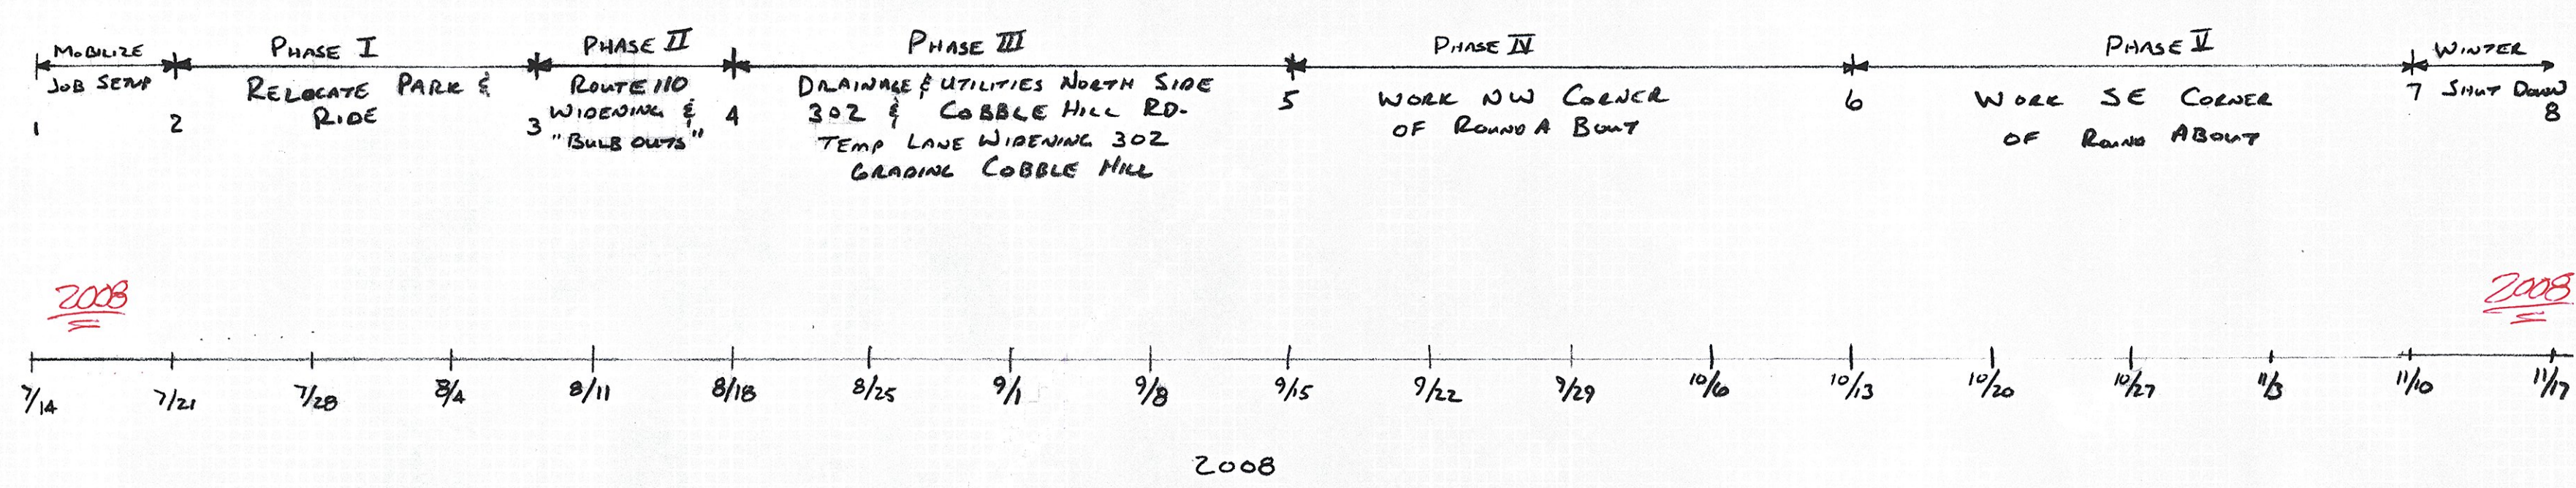 MOBILIZE
JOB SETUP
1
2
PHASE I
RELOCATE PARK &
RIDE
3
PHASE II
ROUTE 110
WIDENING &
"BULB OUTS"
4
PHASE III
DRAINAGE & UTILITIES NORTH SIDE
302 & COBBLE HILL RD.
TEMP LANE WIDENING 302
GRADING COBBLE HILL
5
PHASE IV
WORK NW CORNER
OF ROUND A BOUT
6
PHASE V
WORK SE CORNER
OF ROUND ABOUT
7
WINTER
SHUT DOWN
8
2008
2008
7/14 7/21 7/28 8/4 8/11 8/18 8/25 9/1 9/8 9/15 9/22 9/29 10/6 10/13 10/20 10/27 11/3 11/10 11/17
2008